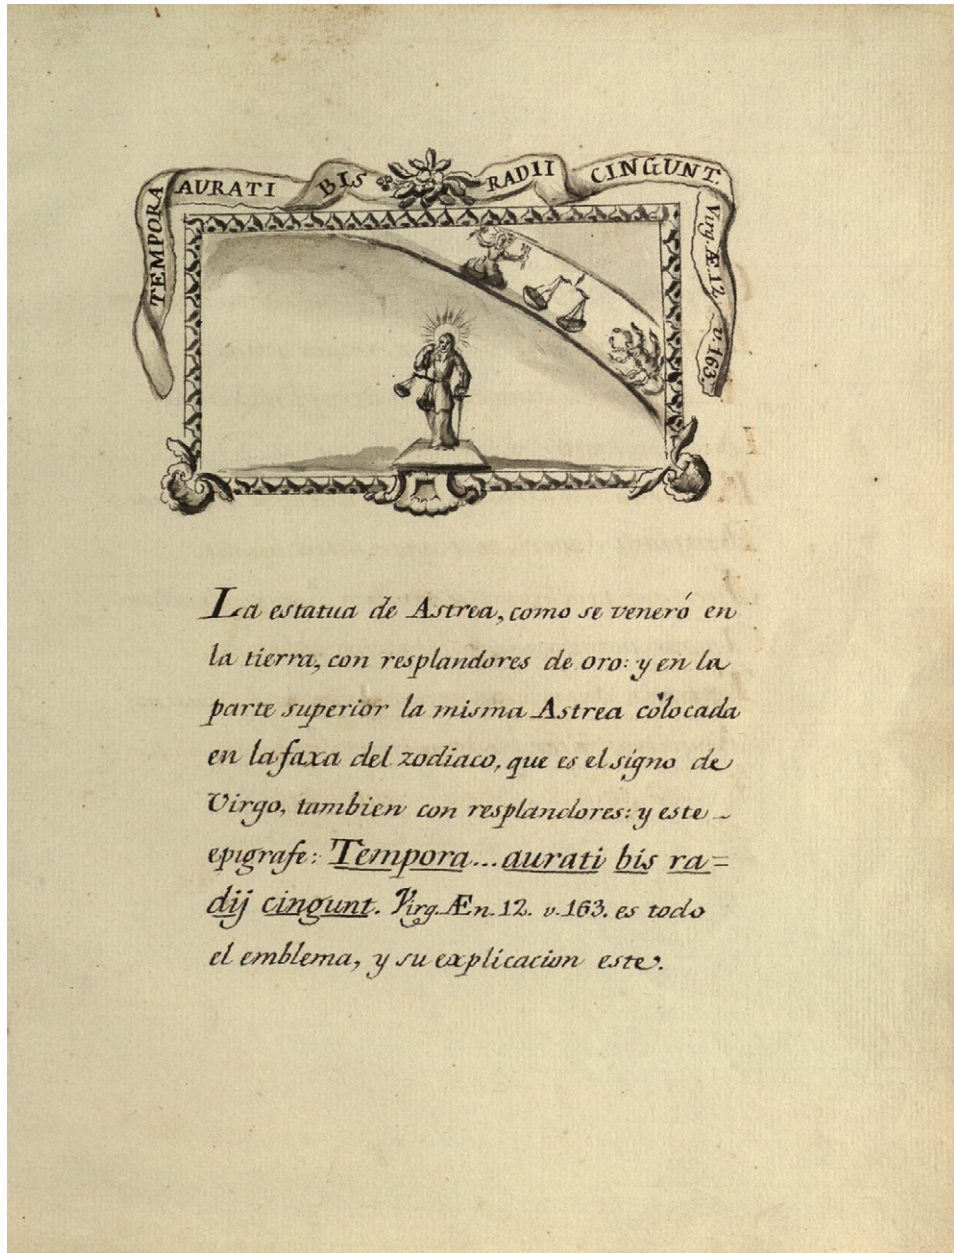 TEMPORA AURATI BIS RADII CINGUNT. Virg. Æ. 12. v. 163.
La estatua de Astrea, como se veneró en
la tierra, con resplandores de oro: y en la
parte superior la misma Astrea colocada
en la faxa del zodiaco, que es el signo de
Virgo, tambien con resplandores: y este
epigrafe: Tempora... aurati bis ra=
dij cingunt. Virg. Æn. 12. v. 163. es todo
el emblema, y su explicacion este.